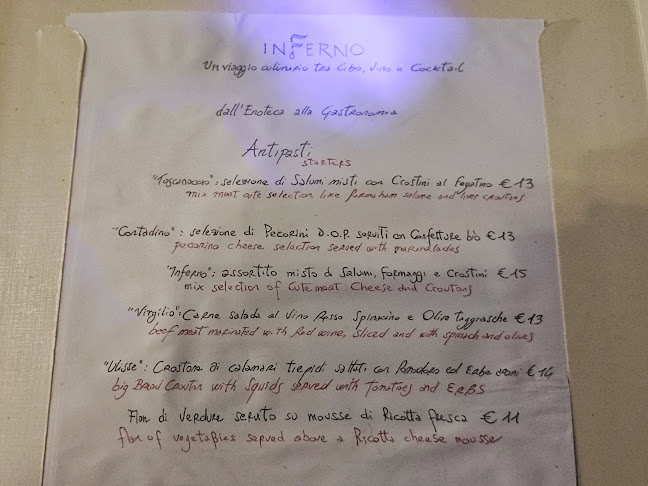 INFERNO
Un viaggio culinario tra Cibo, Vino e Cocktail
dall'Enoteca alla Gastronomia
Antipasti
starters
"Toscanaccio": selezione di Salumi misti con Crostini al Fegatino € 13
mix meat cute selection like parma ham salame and liver croutons
"Contadino": selezione di Pecorini D.O.P. serviti con Confetture bio € 13
pecorino cheese selection served with marmalades
"Inferno": assortito misto di Salumi, Formaggi e Crostini € 15
mix selection of Cute meat Cheese and Croutons
"Virgilio": Carne salada al Vino Rosso Spinacino e Olive Taggiasche € 13
beef meat marinated with Red wine, sliced and with spinach and olives
"Ulisse": Crostone di calamari tiepidi saltati con Pomodoro ed Erbe € 14
big Bread Crouton with squids served with Tomatoes and ERBS
Flan di Verdure servito su mousse di Ricotta fresca € 11
flan of vegetables served above a Ricotta cheese mousse